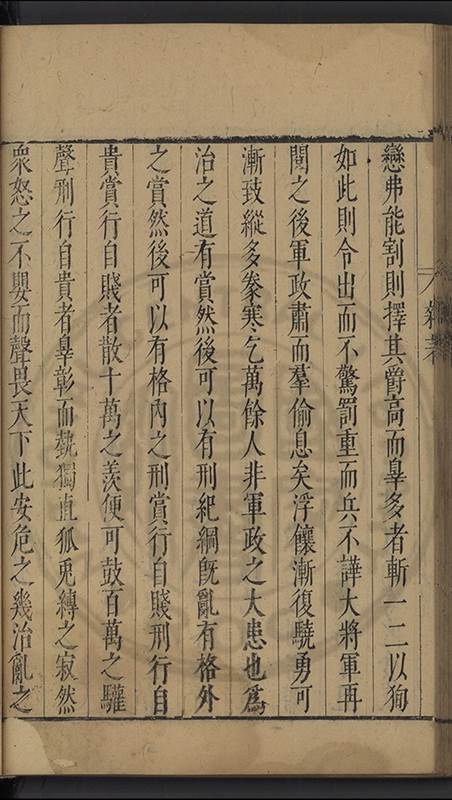 戀弗能割則擇其爵高而辠多者斬一二以狥
如此則令出而不驚罰重而兵不譁大將軍再
閱之後軍政肅而羣偷息矣浮饟漸復驍勇可
漸致縱多豢寒乞萬餘人非軍政之大患也為
治之道有賞然後可以有刑紀綱旣亂有格外
之賞然後可以有格內之刑賞行自賤刑行自
貴賞行自賤者散十萬之羨便可鼓百萬之驩
聲刑行自貴者辠彰而埶獨直狐兎縛之寂然
衆怒之不嬰而聲畏天下此安危之幾治亂之